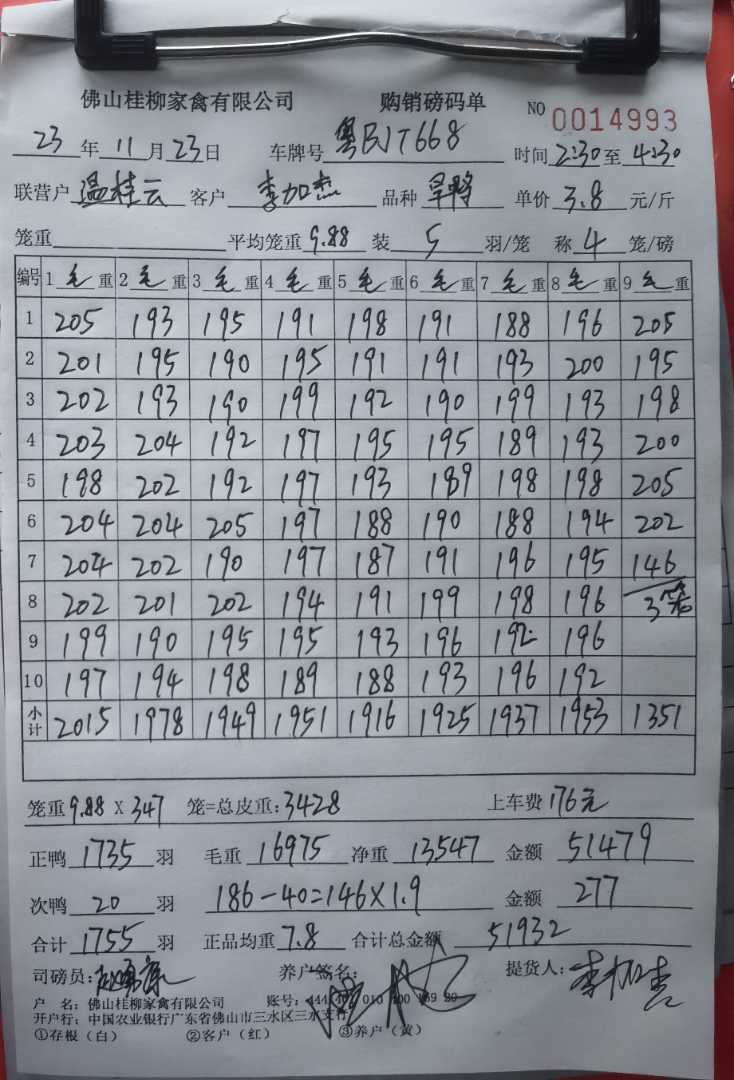 佛山桂柳家禽有限公司 购销磅码单 NO 0014993
23 年 11 月 23 日 车牌号 粤BJT668 时间 2:30 至 4:30
联营户 温桂云 客户 李加杰 品种 旱鸭 单价 3.8 元/斤
笼重 平均笼重 9.88 装 5 羽/笼 称 4 笼/磅
编号 1 毛 重 2 毛 重 3 毛 重 4 毛 重 5 毛 重 6 毛 重 7 毛 重 8 毛 重 9 毛 重
1 205 193 195 191 198 191 188 196 205
2 201 195 190 195 191 191 193 200 195
3 202 193 190 199 192 190 199 193 198
4 203 204 192 197 195 195 189 193 200
5 198 202 192 197 193 189 198 198 205
6 204 204 205 197 188 190 188 194 202
7 204 202 190 197 187 191 196 195 146
8 202 201 202 194 191 199 198 196 3笼
9 199 190 195 195 193 196 192 196
10 197 194 198 189 188 193 196 192
小计 2015 1978 1949 1951 1916 1925 1937 1953 1351
笼重 9.88 X 347 笼=总皮重: 3428 上车费 176元
正鸭 1735 羽 毛重 16975 净重 13547 金额 51479
次鸭 20 羽 186-40=146×1.9 金额 277
合计 1755 羽 正品均重 7.8 合计总金额 51932
司磅员: 养户签名: 提货人: 李加杰
户 名: 佛山桂柳家禽有限公司 账号:
开户行: 中国农业银行广东省佛山市三水区三水支行
①存根（白） ②客户（红） ③养户（黄）